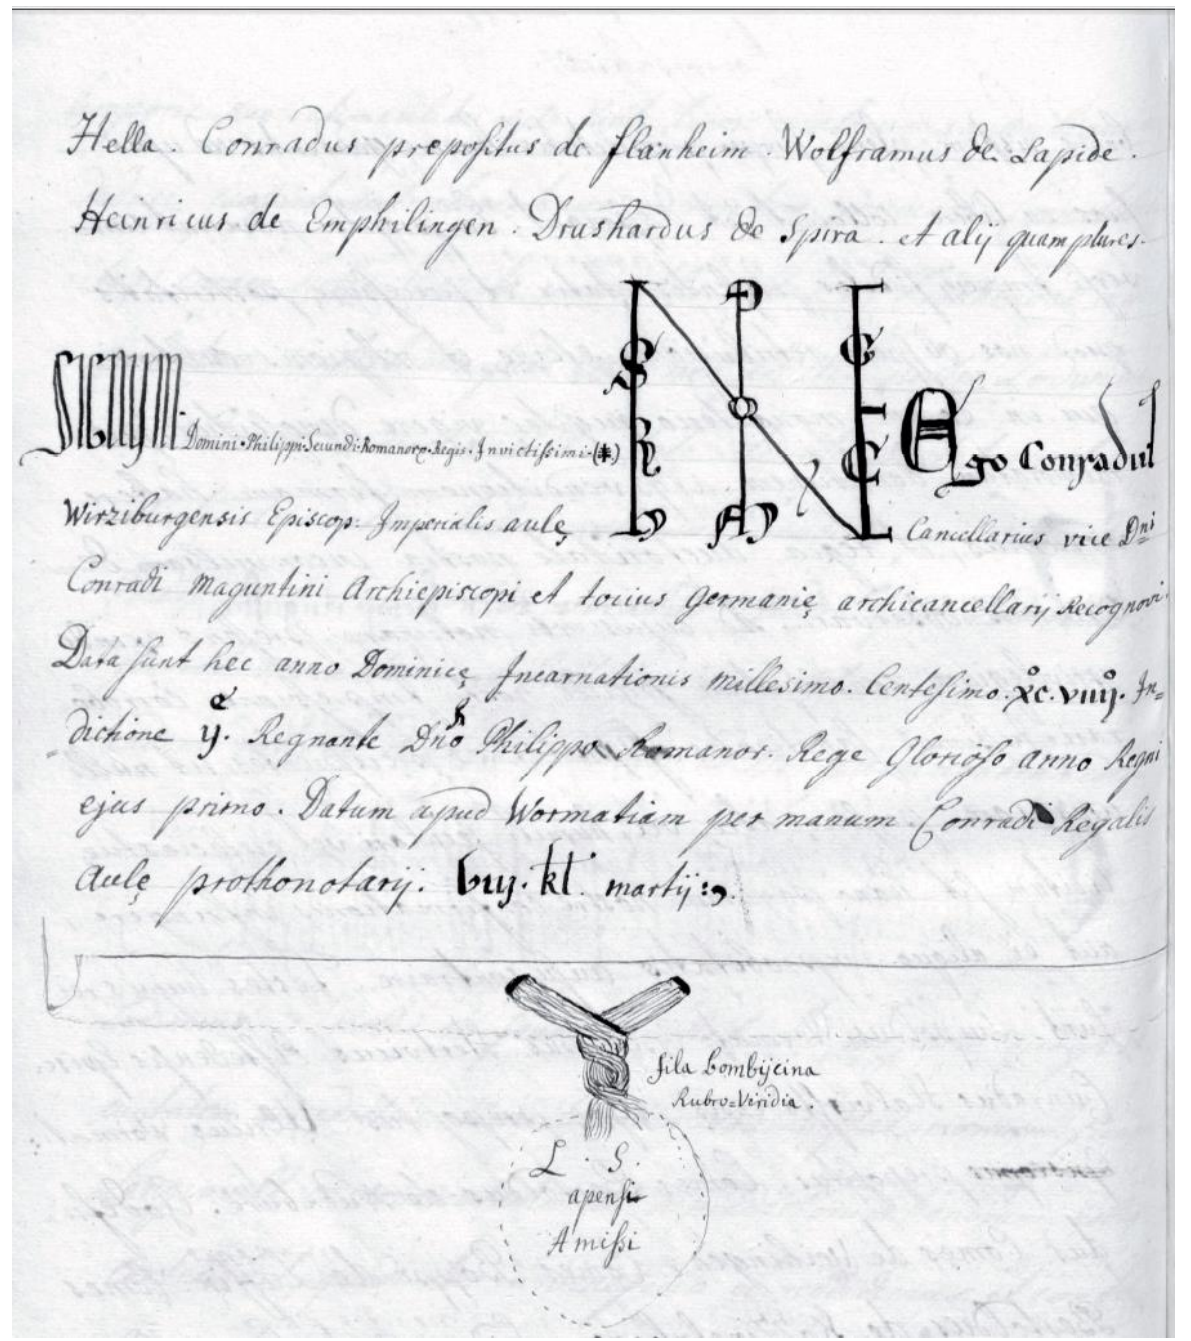 Hella. Conradus prepositus de flanheim. Wolframus de Lapide.
Heinricus de Emphilingen. Drushardus de Spira. et alij quam plures.
SIGNUM Domini · Philippi · Secundi · Romanorꝝ · Regis · Invictissimi · (⋕) Ego Conradus
Wirziburgensis Episcop: Imperialis aulę Cancellarius vice Dni
Conradi Maguntini Archiepiscopi et tocius Germanię archicancellarij Recognovi.
Data sunt hec anno Dominicę Incarnationis millesimo. Centesimo. xͦc. viiijͦ. In=
dictione ijͤ. Regnante Dno Philippo Romanor. Rege Glorioso anno Regni
ejus primo. Datum apud Wormatiam per manum Conradi Regalis
Aulę prothonotarij. viij. kl. martij:,
fila bombijcina
Rubro=Viridia.
L. S.
apensi
Amissi